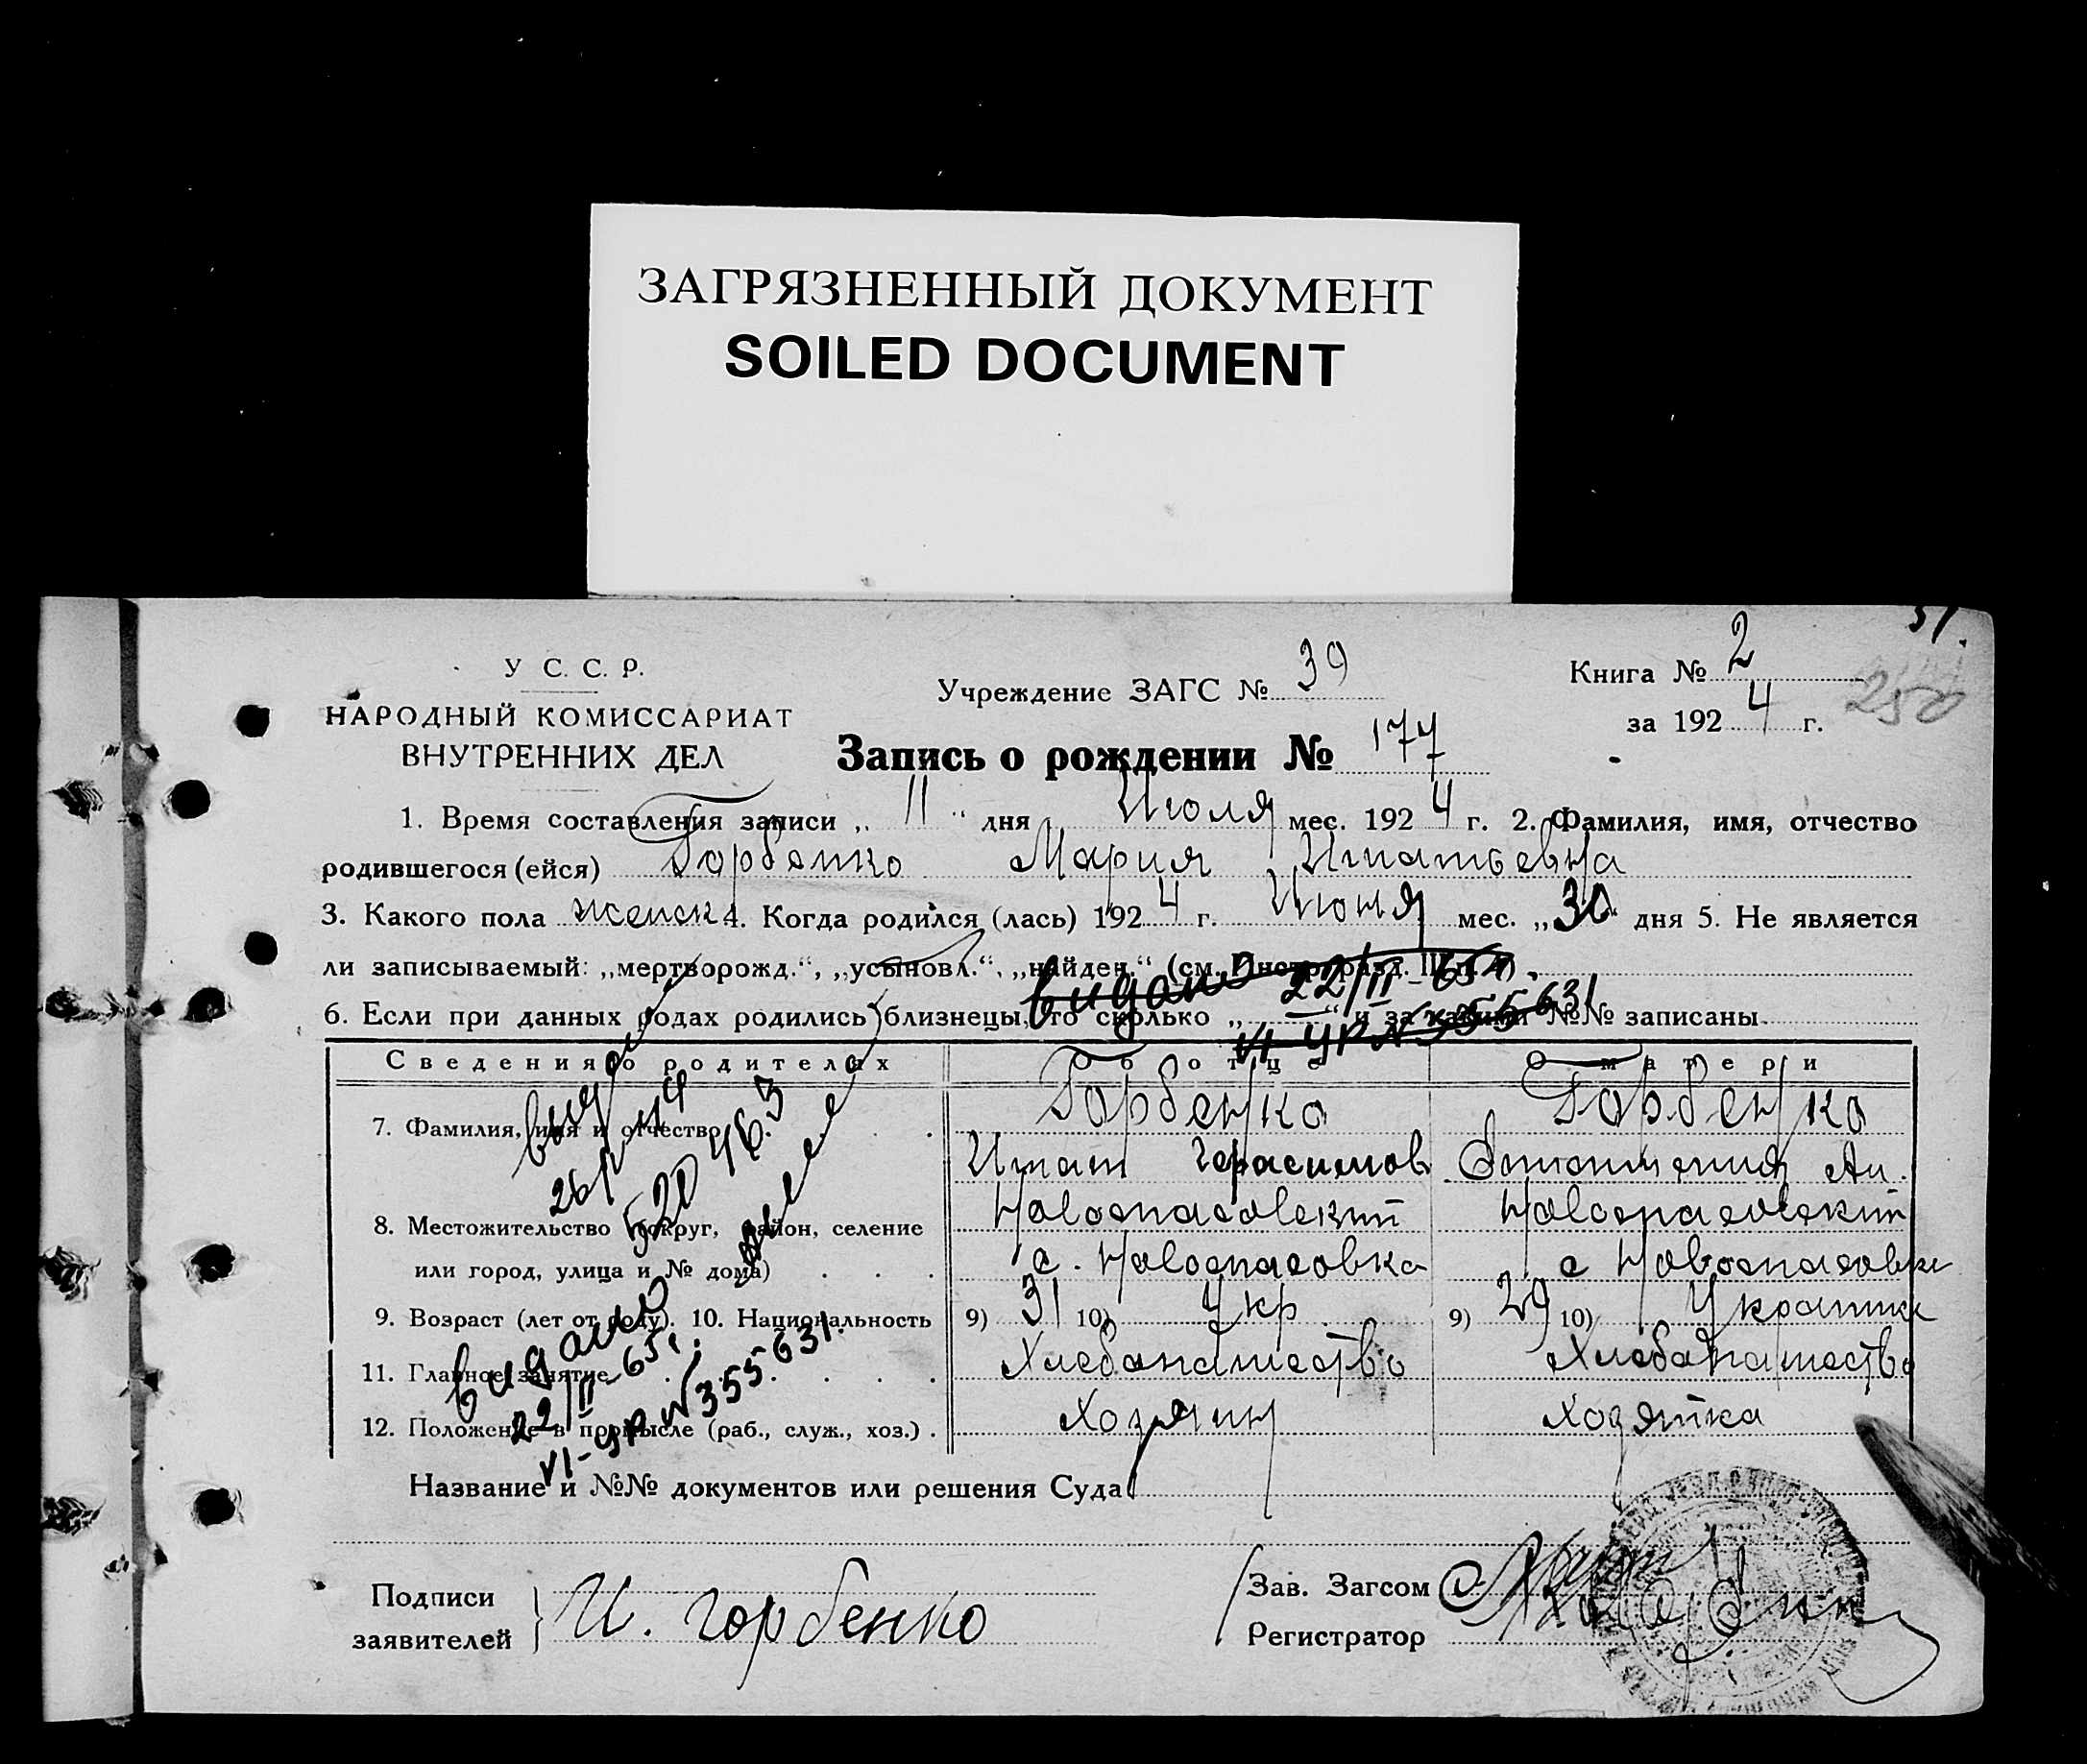 ЗАГРЯЗНЕННЫЙ ДОКУМЕНТ
SOILED DOCUMENT
У С. С. Р.
НАРОДНЫЙ КОМИССАРИАТ
ВНУТРЕННИХ ДЕЛ
Учреждение ЗАГС № 39
Книга № 2
250
за 1924 г.
Запись о рождении № 177
1. Время составления записи „ 11 “ дня Июля мес. 1924 г. 2. Фамилия, имя, отчество
родившегося (ейся) Горбенко Мария Игнатьевна
3. Какого пола женск 4. Когда родился (лась) 1924 г. Июня мес. „30“ дня 5. Не является
ли записываемый: „мертворожд.“, „усыновл.“, „найден.“ (см. Инстр. разд. III п. 4)
видано 22/II-65
6. Если при данных родах родились близнецы, то сколько „ “ и за какими №№ записаны
VI УР № 355631
Сведения о родителях Об отце О матери
7. Фамилия, имя и отчество Горбенко Горбенко
Игнат Герасимов
8. Местожительство (округ, район, селение Новоспасовский Новоспасовский
или город, улица и № дома) с. Новоспасовка с Новоспасовка
9. Возраст (лет от роду). 10. Национальность 9) 31 10) Укр 9) 29 10)
11. Главное занятие Хлебопашество Хлебопашество
12. Положение в промысле (раб., служ., хоз.) Хозяин Хозяйка
видано
22/II-65г.
VI-УР № 355631.
Название и №№ документов или решения Суда
Подписи
заявителей И. Горбенко
Зав. Загсом
Регистратор